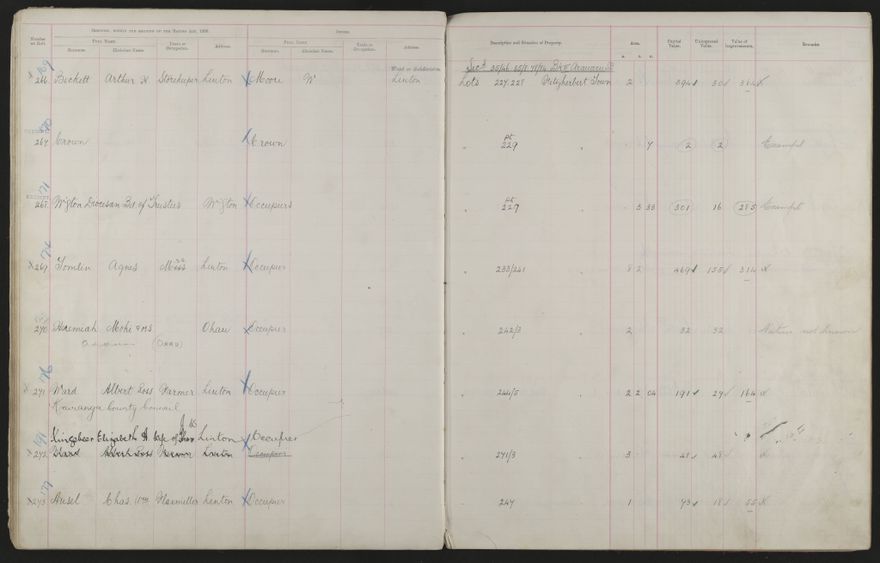 Number on Roll.
Full Name.
Surname. Christian Name. Trade or Occupation. Address.
Owner.
Full Name.
Surname. Christian Name. Trade or Occupation. Address.
Description and Situation of Property. Area. Capital Value. Unimproved Value. Value of Improvements. Remarks
a. r. p.
266 Beckett Arthur H. Storekeeper Linton Moore W Linton
Lots 227.228 Fitzherbert Town 2 394 30 364
267 Crown Crown
pt 229 4 2 2 Exempt
268 Wgton Diocesan Bd. of Trustees Wgton Occupiers
pt 229 3 33 301 16 285 Exempt
269 Tomlin Agnes Linton Occupier
233/241 8 2 469 155 314
270 Heremaiah Mohi Ohau Occupier
242/3 2 32 32 Native not known
271 Ward Albert Ross Farmer Linton Occupier
244/5 2 2 04 191 27 164
Kairanga County Council
Kingsbeer Elizabeth A. wife of Linton Occupier
272 Ward Albert Ross Farmer Linton Occupier
271/3 3 48 48
273 Ansel Chas. Wm Flaxmiller Linton Occupier
247 1 73 18 55